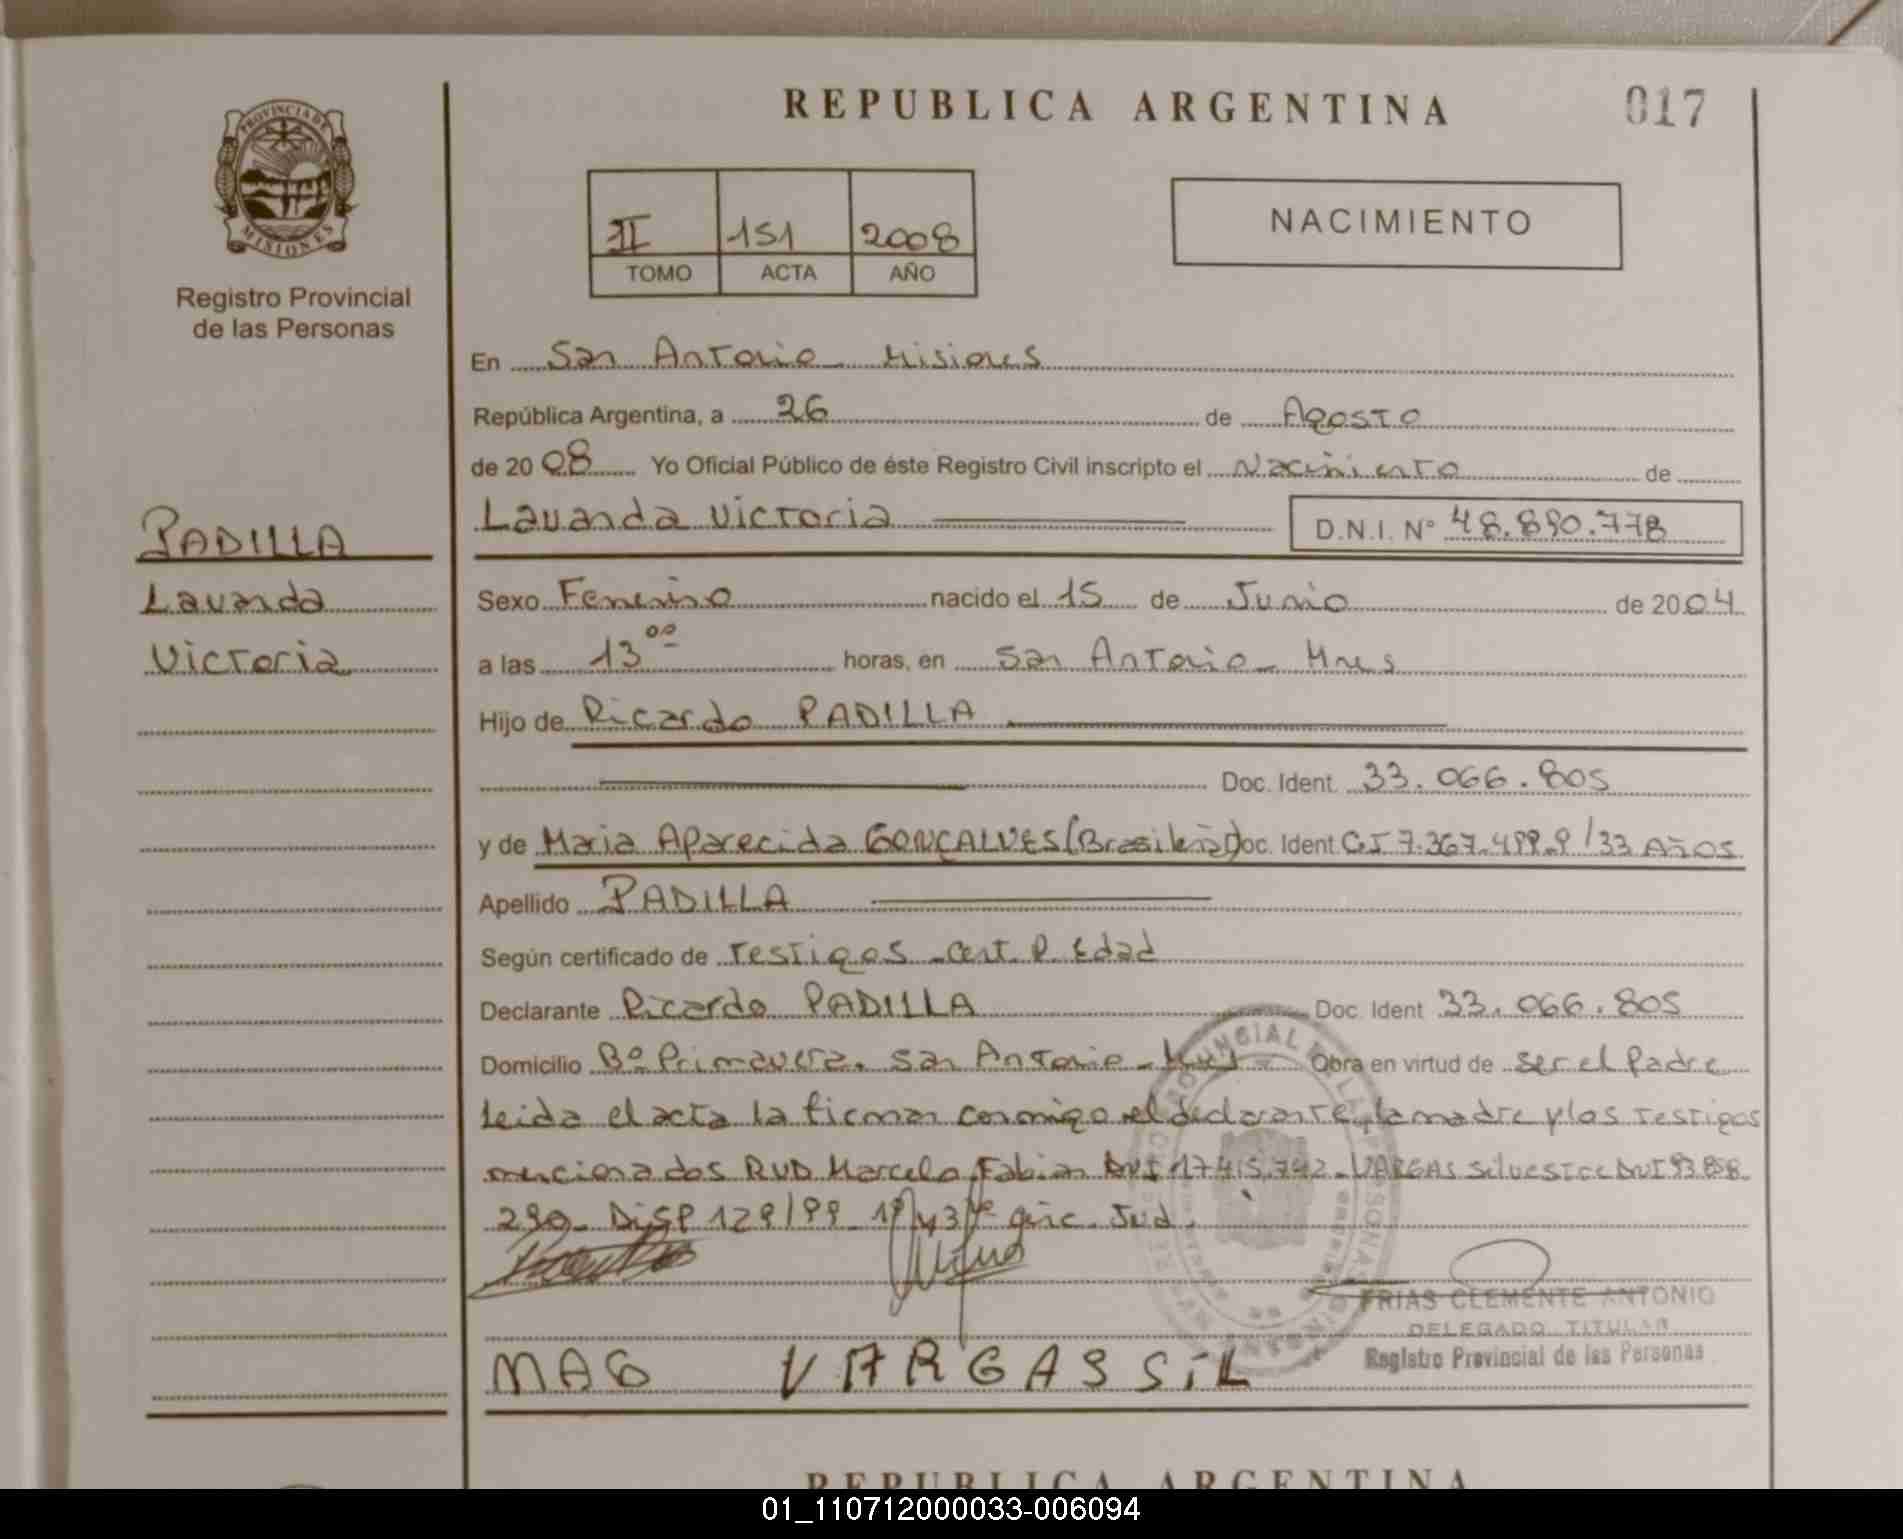 REPUBLICA ARGENTINA
017
PROVINCIA DE
MISIONES
Registro Provincial
de las Personas
II 151 2008
TOMO ACTA AÑO
NACIMIENTO
En San Antonio Misiones
República Argentina, a 26 de Agosto
de 20 08 Yo Oficial Público de éste Registro Civil inscripto el Nacimiento de
Lavanda Victoria D.N.I. Nº 48.890.778
PADILLA
Lavanda
Victoria
Sexo Femenino nacido el 15 de Junio de 2004
a las 13 00 horas, en San Antonio - Mnes
Hijo de Ricardo PADILLA
Doc. Ident. 33.066.805
y de Maria Aparecida GONÇALVES (Brasileña) Doc. Ident. CI 7.367.499-9/33 Años
Apellido PADILLA
Según certificado de Testigos - Cert. P. Edad
Declarante Ricardo PADILLA Doc. Ident 33.066.805
Domicilio Bº Primavera. San Antonio - Obra en virtud de ser el Padre
Leida el acta la firman conmigo el declarante, la madre y los testigos
mencionados RUD Marcelo Fabian DNI 17.415.742 - VARGAS Silvestre DNI 93.858.
290 - DISP 129/99 - 1º y 3º Circ. Jud.
FRIAS CLEMENTE ANTONIO
DELEGADO TITULAR
Registro Provincial de las Personas
MAG VARGAS SiL
REPUBLICA ARGENTINA
01_110712000033-006094